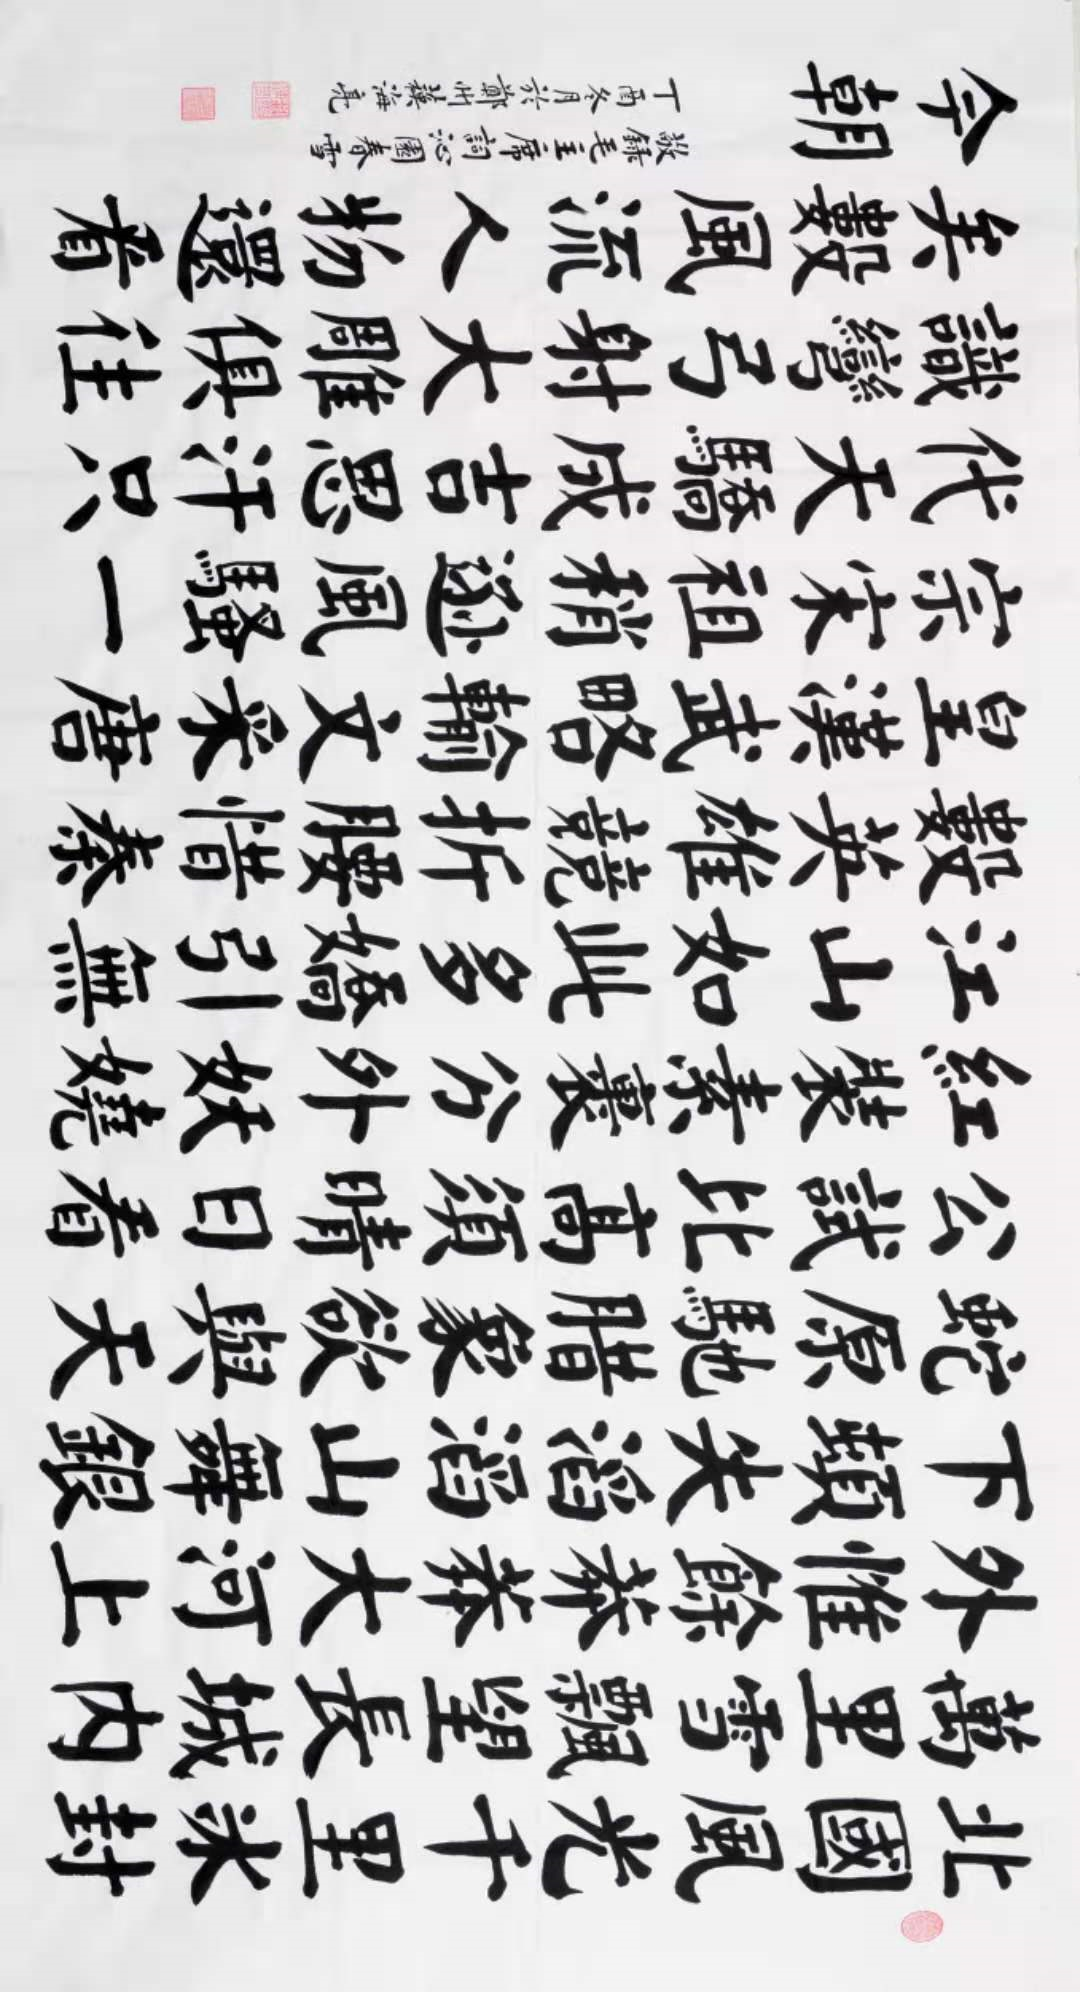 北國風光千里冰封
萬里雪飄望長城內
外惟餘莽莽大河上
下頓失滔滔山舞銀
蛇原馳腊象欲與天
公試比高須晴日看
紅裝素裹分外妖嬈
江山如此多嬌引無
數英雄競折腰惜秦
皇漢武略輸文采唐
宗宋祖稍遜風騷一
代天驕成吉思汗只
識彎弓射大雕俱往
矣數風流人物還看
今朝
敬錄毛主席詞沁園春雪
丁酉冬月於鄭州蘇海亮